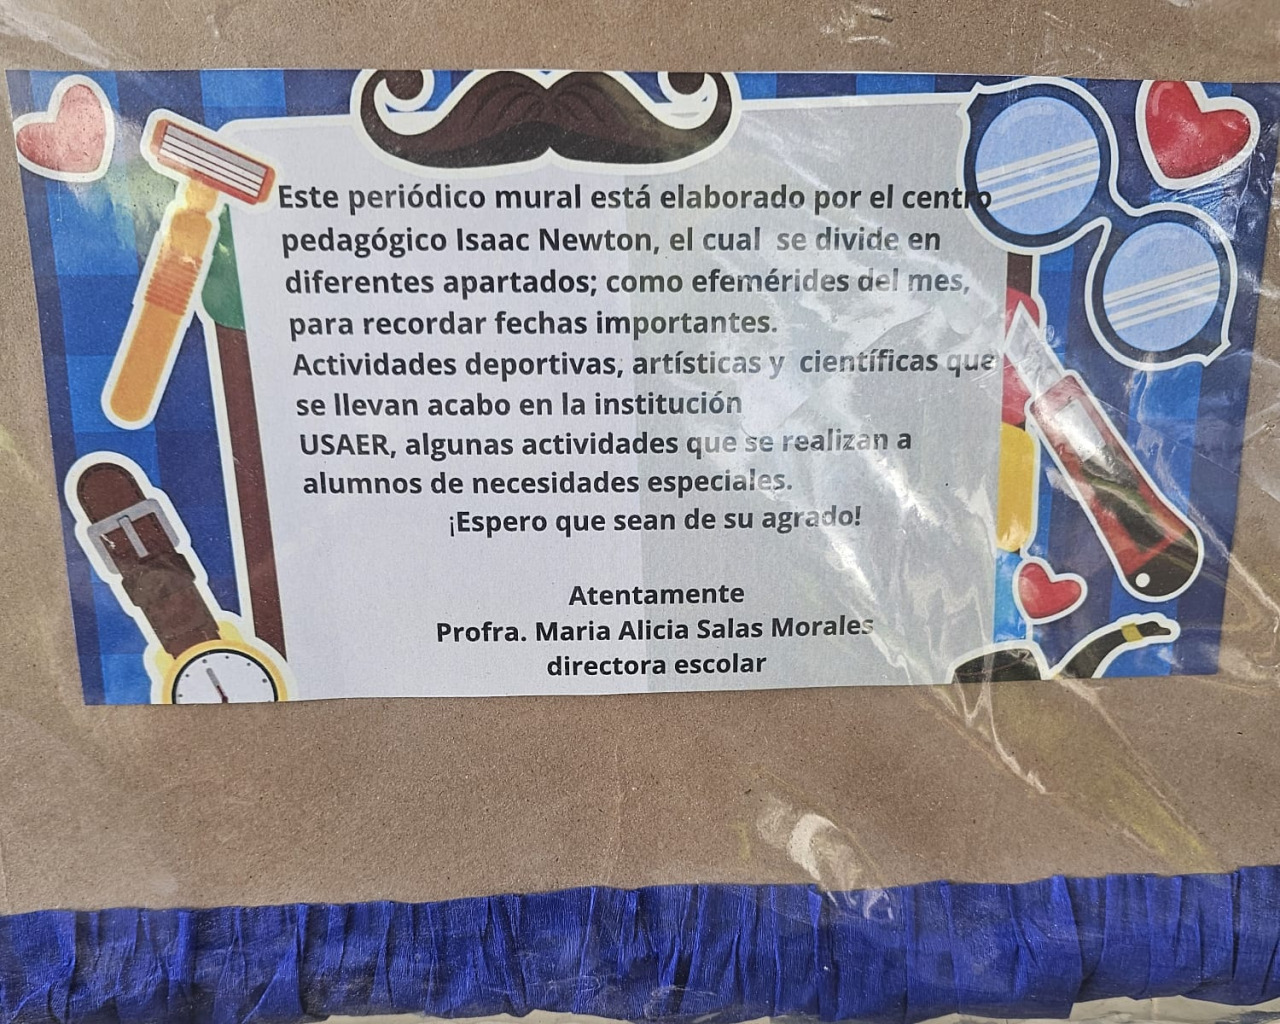 Este periódico mural está elaborado por el centro
pedagógico Isaac Newton, el cual se divide en
diferentes apartados; como efemérides del mes,
para recordar fechas importantes.
Actividades deportivas, artísticas y científicas que
se llevan acabo en la institución
USAER, algunas actividades que se realizan a
alumnos de necesidades especiales.
¡Espero que sean de su agrado!
Atentamente
Profra. Maria Alicia Salas Morales
directora escolar